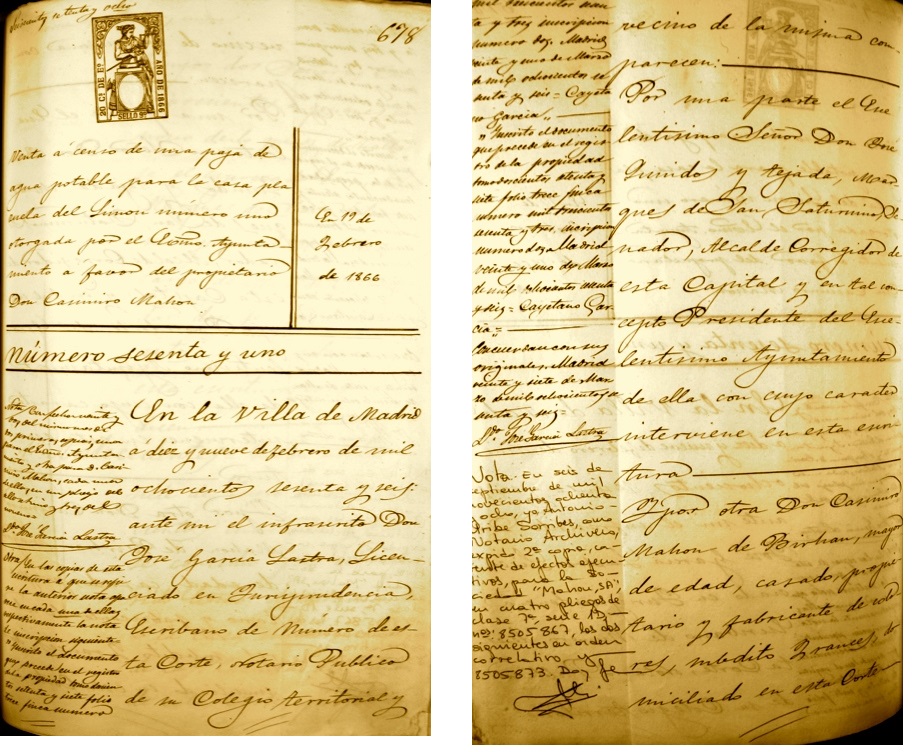 678
20 Ct DE Eº
AÑO DE 1866
SELLO 9º
Venta a censo de una paja de
agua potable para la casa pla
zuela del Limon número uno
otorgada por el Excmo. Ayunta-
miento a favor del propietario
Don Casimiro Mahou
En 19 de
Febrero
de 1866
Número sesenta y uno
En la Villa de Madrid
á diez y nueve de Febrero de mil
ochocientos sesenta y seis:
ante mi el infrascrito Don
José Garcia Lastra, Licen-
ciado en Jurisprudencia,
Escribano de Numero de es-
ta Corte, Notario Publico
de su Colegio territorial y
Dr. José Garcia Lastra
Otra/ En las copias de esta
escritura á que se refie
re la anterior nota
en cada una de ellas
respectivamente la nota
de inscripcion siguiente
"Inscrito el documento
que precede en el registro
de la propiedad
setenta y siete folio
trece finca numero
mil trescientos
ta y tres inscripcion
numero dos. Madrid
veinte y uno de Marzo
de mil ochocientos se
senta y seis = Cayeta
no Garcia"
"Inscrito el documento
que precede en el regis
tro de la propiedad
tomo doscientos setenta y
siete folio trece finca
número mil trescientos
y tres, inscripcion
numero dos Madrid
veinte y uno de Marzo
de mil ochocientos sesenta
y seis = Cayetano Gar
cia" =
Concuerdan con sus
originales. Madrid
veinte y siete de Mar
zo de mil ochocientos se
senta y seis =
Dr. José Garcia Lastra
Nota. En seis de
septiembre de mil
novecientos ochenta
y ocho, yo Antonio-
Uribe Sorribes, como
Notario Archivero,
expido 2ª copia, ca-
rente de efectos ejecu-
tivos, para la So-
ciedad "Mahou, SA",
en cuatro pliegos de
clase 7ª, serie
nº 8505867, los dos
siguientes en orden
correlativo, y
8505873. Doy fe
vecino de la misma com-
parecen:
Por una parte el Exe
lentisimo Señor Don José
Quindos y Tejada, Mar-
ques de San Saturnino, Se-
nador, Alcalde Corregidor de
esta Capital y en tal con-
cepto Presidente del Exe-
lentisimo Ayuntamiento
de ella con cuyo caracter
interviene en esta escri
tura
Y por otra Don Casimiro
Mahou de Birhan, mayor
de edad, casado, propie
tario y fabricante de colo
res, subdito Frances, do
miciliado en esta Corte